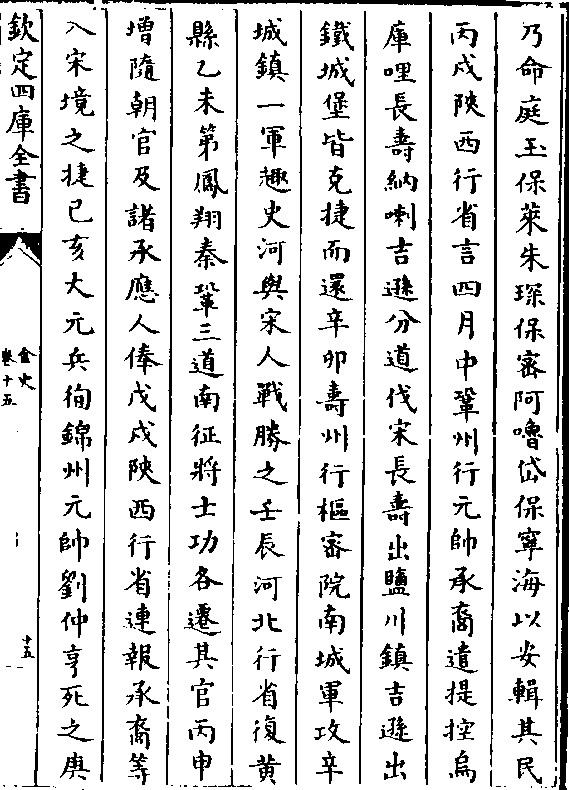 乃命庭玉保萊朱琛保密阿嚕岱保寧海以安輯其民
丙戌陜西行省言四月中鞏州行元帥承裔遣提控烏
庫哩長壽納喇吉遜分道伐宋長壽出鹽川鎮吉遜出
鐵城堡皆克捷而還辛卯壽州行樞密院南城軍攻辛
城鎮一軍趣史河與宋人戰勝之壬辰河北行省復黄
縣乙未第鳳翔秦鞏三道南征將士功各遷其官丙申
増隨朝官及諸承應人俸戊戌陜西行省連報承裔等
入宋境之捷已亥大元兵徇錦州元帥劉仲亨死之庚
欽定四庫全書
金史
卷十五
十五